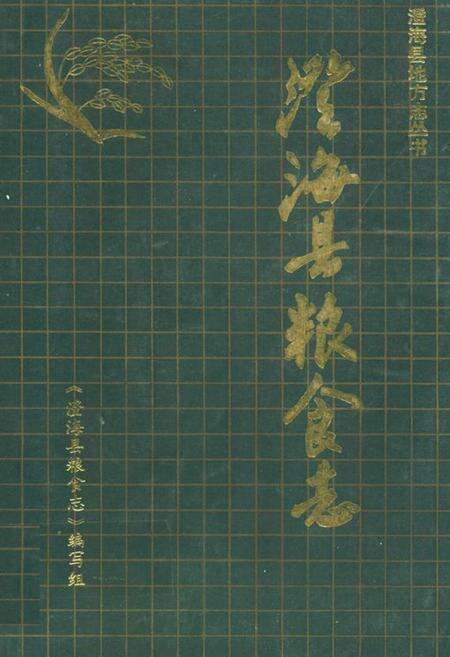 澄海县地方志丛书
澄海县粮食志
《澄海县粮食志》编写组